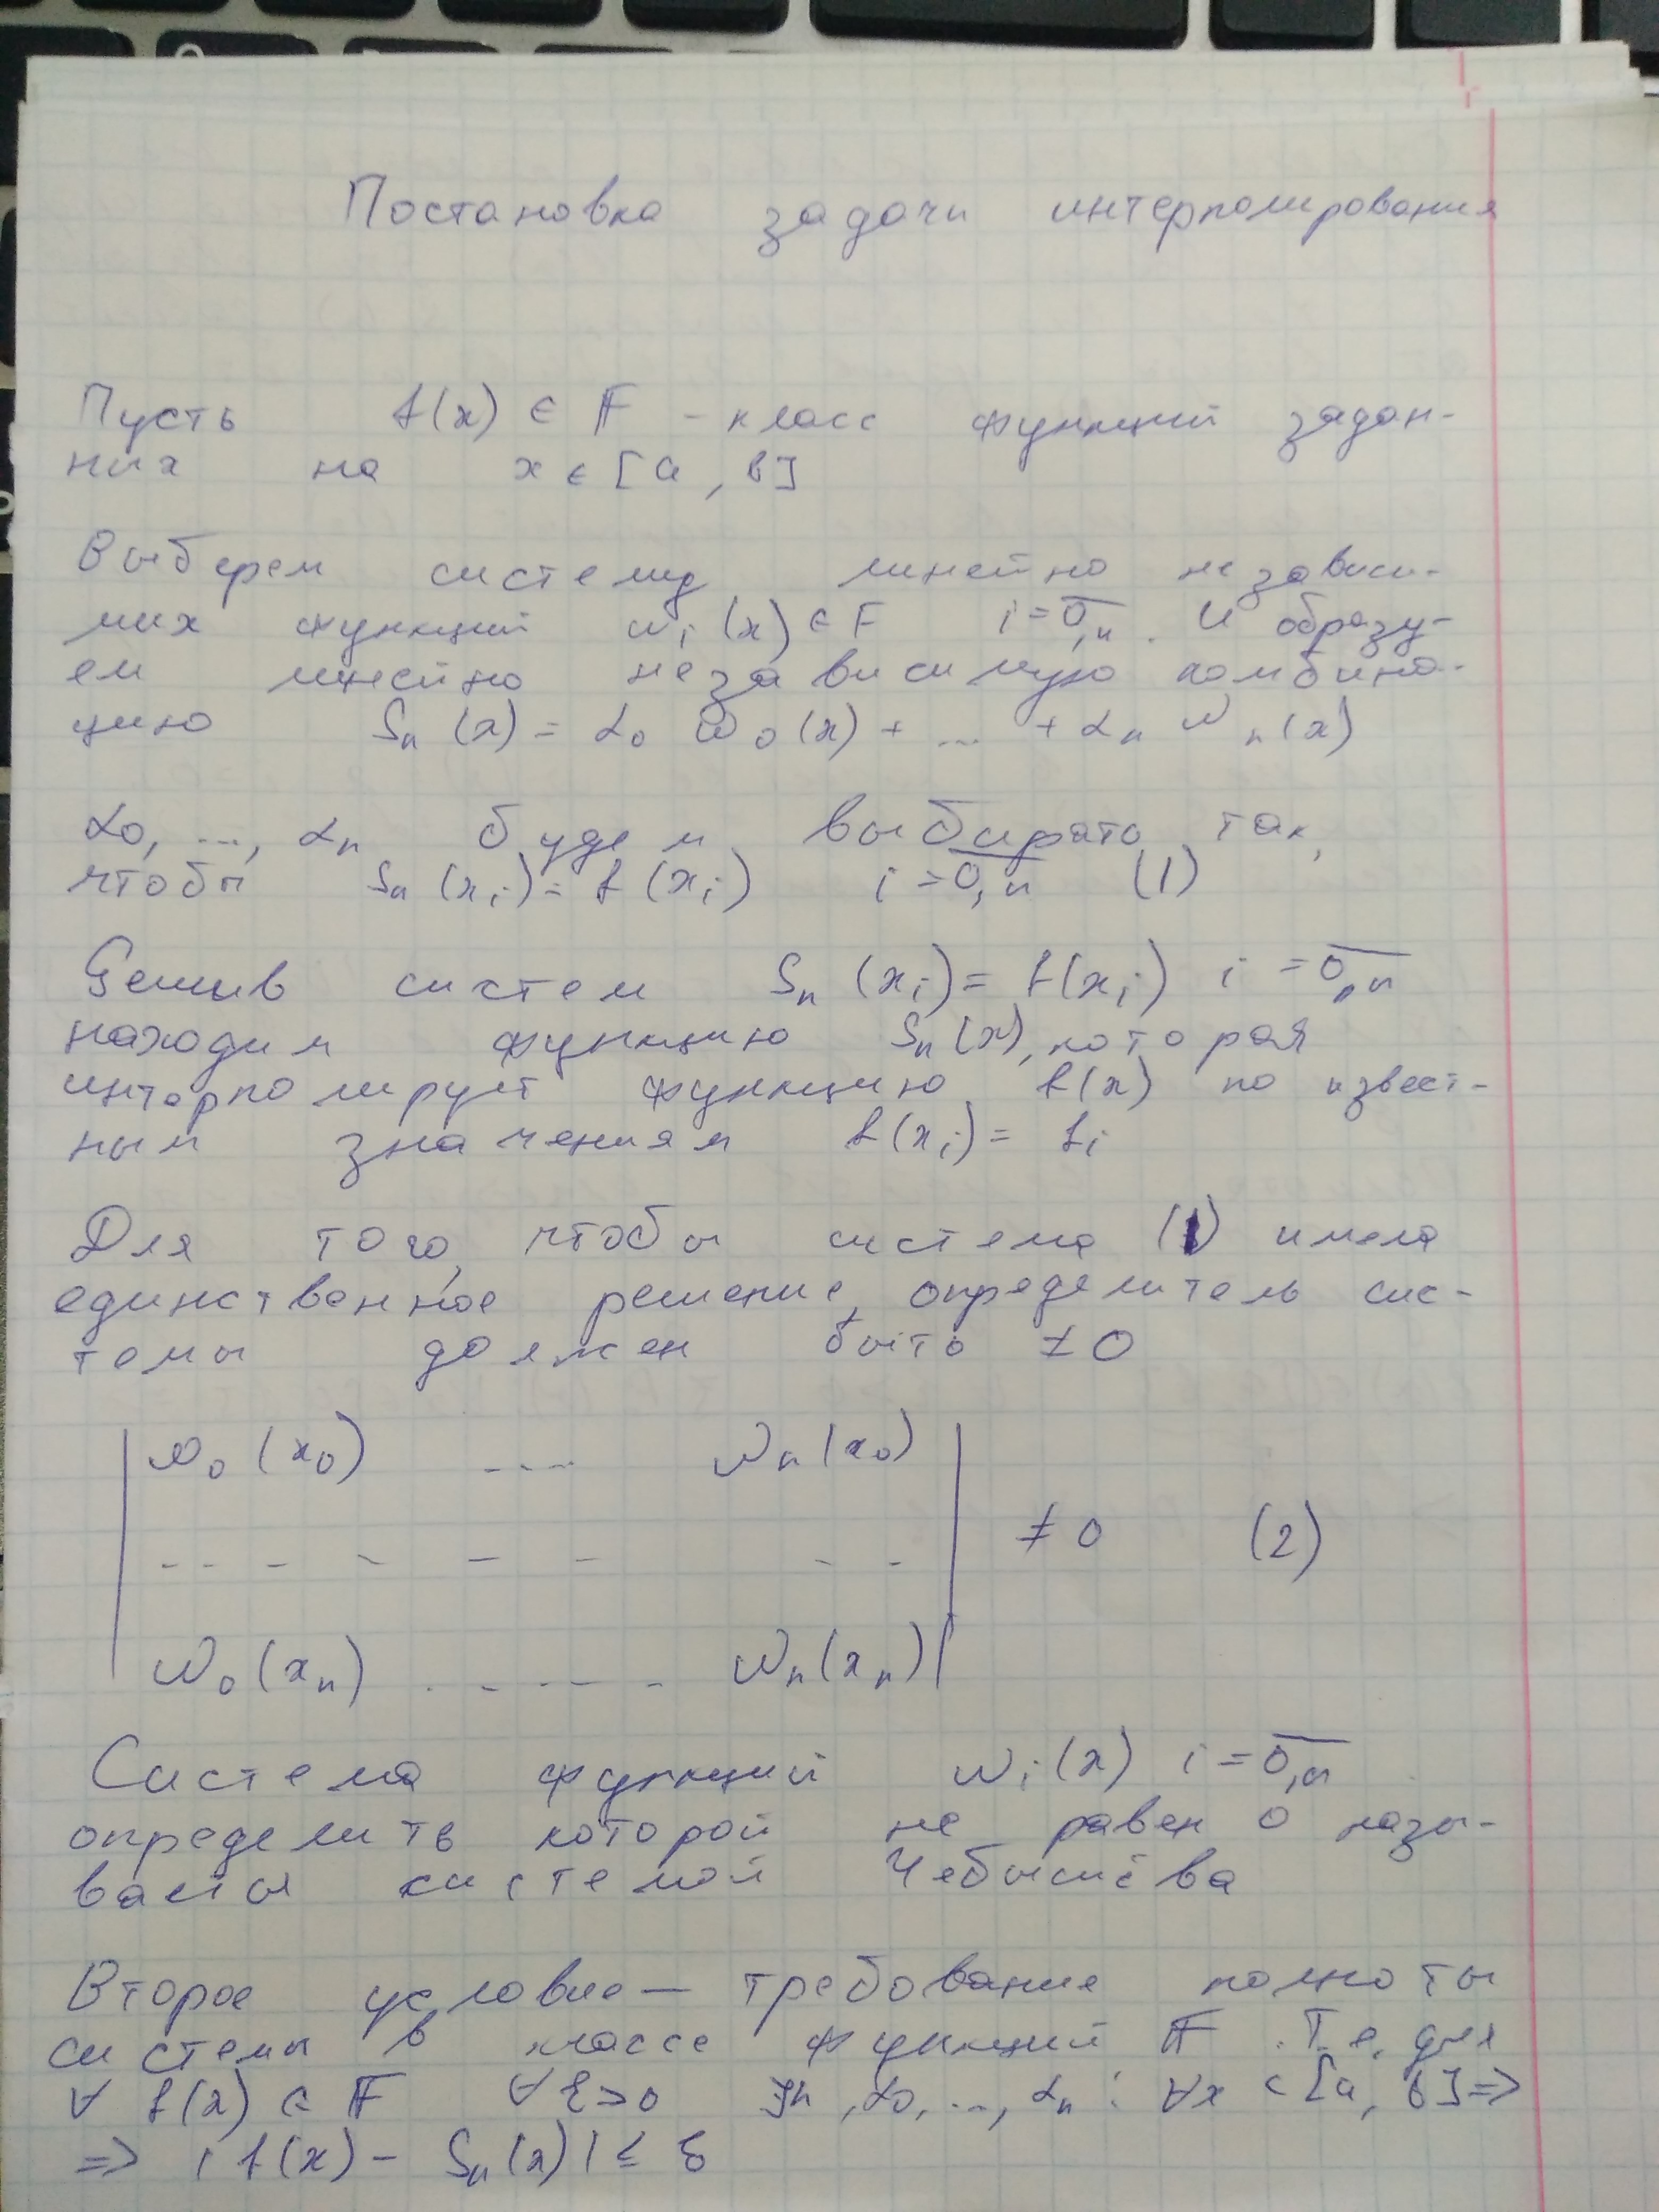 Постановка задачи интерполирования
Пусть f(x) ∈ F - класс функций задан-
них на x ∈ [a, b]
Выберем систему линейно независи-
мих функций ω_i(x) ∈ F i = \overline{0,n}. И образу-
ем линейно независимую комбина-
цию S_n(x) = α_0 ω_0(x) + ... + α_n ω_n(x)
α_0, ..., α_n будем выбирать так,
чтобы S_n(x_i) = f(x_i) i = \overline{0,n} (1)
Решив систем S_n(x_i) = f(x_i) i = \overline{0,n}
находим функцию S_n(x), которая
интерполирует функцию f(x) по извест-
ным значениям f(x_i) = f_i
Для того, чтобы система (1) имела
единственное решение, определитель сис-
темы должен быть ≠ 0
| ω_0(x_0) .... ω_n(x_0) |
| - - - - - - - - | ≠ 0 (2)
| ω_0(x_n) ...... ω_n(x_n) |
Система функций ω_i(x) i = \overline{0,n}
определить которой не равен 0 назы-
вается системой Чебышева
Второе условие — требование полноты
системы в классе функций F. Т.е. для
∀ f(x) ∈ F ∀ ε > 0 ∃ n, α_0, ..., α_n : ∀x ∈ [a, b] =>
=> | f(x) - S_n(x) | ≤ ε